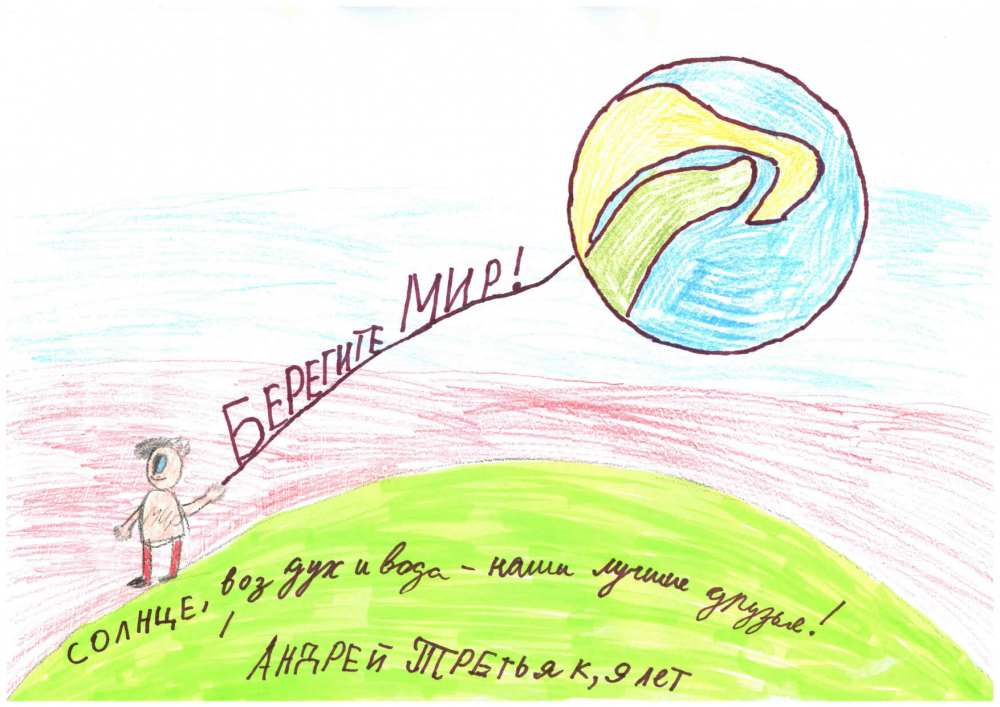 БЕРЕГИТЕ МИР!
СОЛНЦЕ, воздух и вода - наши лучшие друзья!
АНДРЕЙ ТРЕТЬЯК, 9 лет